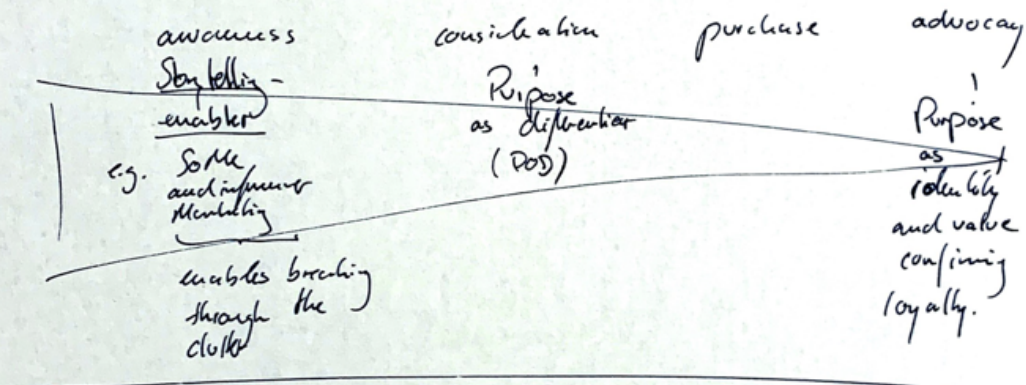 awareness
consideration
purchase
advocacy
Storytelling -
enabler
e.g. SoMe
and influencer
Marketing
enables breaking
through the
clutter
Purpose
as differentiator
(POD)
Purpose
as
identity
and value
confirming
loyalty.